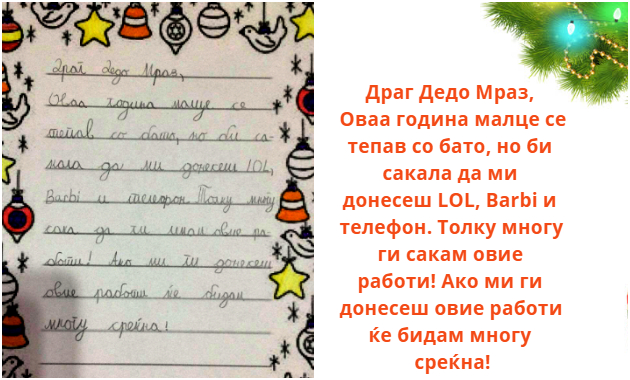 Драг Дедо Мраз,
Оваа година малце се
тепав со бато, но би са-
кала да ми донесеш LOL,
Barbi и телефон. Толку многу
сака да ги имам овие ра-
боти! Ако ми ги донесеш
овие работи ќе бидам
многу среќна!
Драг Дедо Мраз,
Оваа година малце се
тепав со бато, но би
сакала да ми
донесеш LOL, Barbi и
телефон. Толку многу
ги сакам овие
работи! Ако ми ги
донесеш овие работи
ќе бидам многу
среќна!